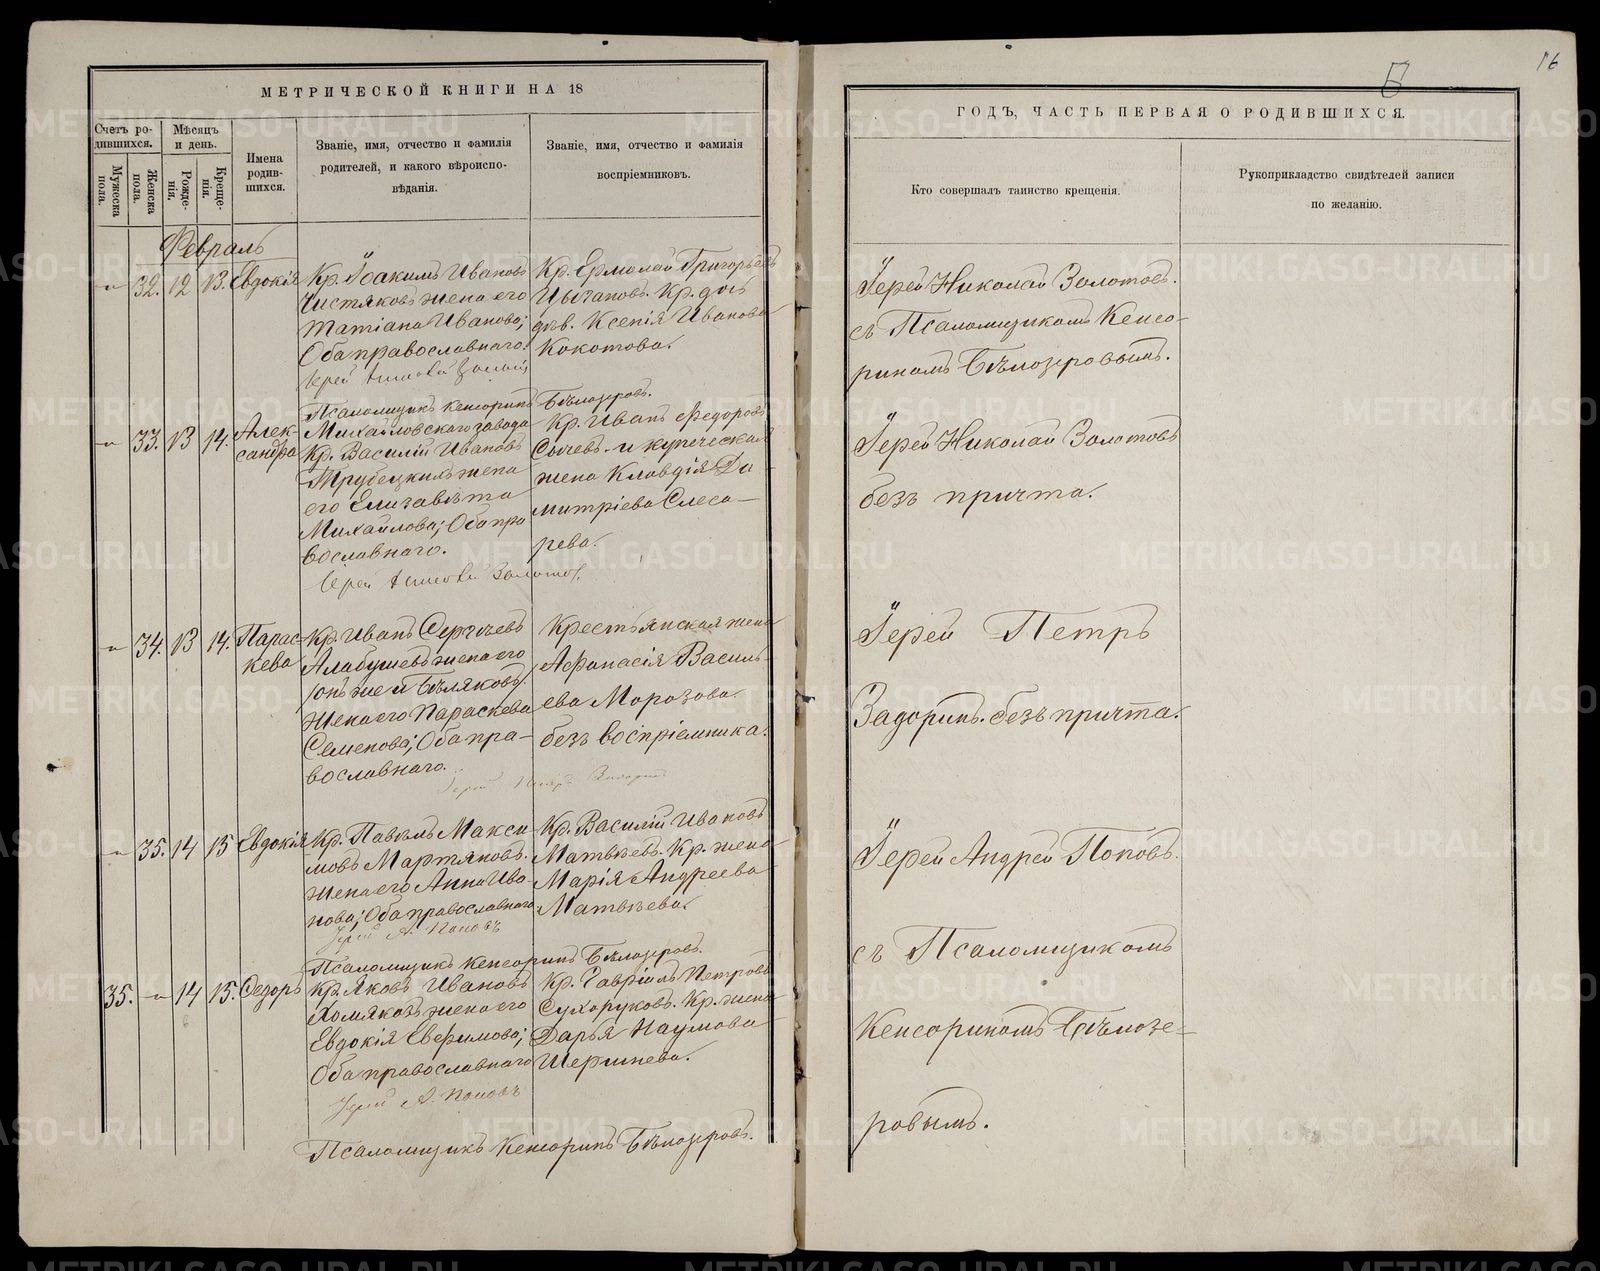 16
Б
МЕТРИЧЕСКОЙ КНИГИ НА 18
ГОДЪ, ЧАСТЬ ПЕРВАЯ О РОДИВШИХСЯ.
Счетъ ро-
дившихся.
Мужеска
пола.
Женска
пола.
Мѣсяцъ
и день.
Рожде-
нія.
Креще-
нія.
Имена
родив-
шихся.
Званіе, имя, отчество и фамилія
родителей, и какого вѣроиспо-
вѣданія.
Званіе, имя, отчество и фамилія
воспріемниковъ.
Кто совершалъ таинство крещенія.
Рукоприкладство свидѣтелей записи
по желанію.
Февраль
32. 12 13. Евдокія
Кр. Іоакимъ Ивановъ
Чистяковъ жена его
Татіана Иванова;
Оба православнаго.
Кр. Ермолай Григорьевъ
Цыгановъ. Кр. дочь
дѣв. Ксенія Иванова
Кокотова.
Іерей Николай Золотов.
съ Псаломщикомъ Кенсо-
риномъ Бѣлозеровымъ.
Псаломщикъ Кенсоринъ Бѣлозеровъ.
33. 13 14. Алек-
сандра
Михайловскаго завода
Кр. Василій Ивановъ
Трубецкихъ жена
его Елизавета
Михайлова; Оба пра
вославнаго.
Іерей Николай Золотов.
Кр. Иванъ Федоровъ
Сычевъ и купеческая
жена Клавдія Ди-
митріева Слеса-
рева.
Іерей Николай Золотовъ
безъ причта.
34. 13 14. Парас-
кева
Кр. Иванъ Сергѣевъ
Алабушевъ жена его
/онъ же и Бѣляковъ/
жена его Параскева
Семенова; Оба пра-
вославнаго.
Іерей Петръ Задоринъ
Крестьянская жена
Афанасія Василь-
ева Морозова
безъ воспріемника.
Іерей Петръ
Задоринъ. безъ причта.
35. 14 15 Евдокія
Кр. Павелъ Макси-
мовъ Мартяновъ.
жена его Анна Ива-
нова; Оба православнаго
Іерей А. Поповъ
Кр. Василій Ивановъ
Матвѣевъ. Кр. жена
Марія Андреева
Матвѣева.
Іерей Андрей Поповъ.
съ Псаломщикомъ
Кенсориномъ Бѣлозе-
ровымъ.
Псаломщикъ Кенсоринъ Бѣлозеровъ.
35. 14 15. Федоръ
Кр. Яковъ Ивановъ
Хомяковъ жена его
Евдокія Евфимова;
Оба православнаго
Іерей А. Поповъ
Кр. Гавріилъ Петровъ
Сухоруковъ. Кр. жена
Дарья Наумова
Шершнева.
Псаломщикъ Кенсоринъ Бѣлозеровъ.
METRIKI.GASO-URAL.RU